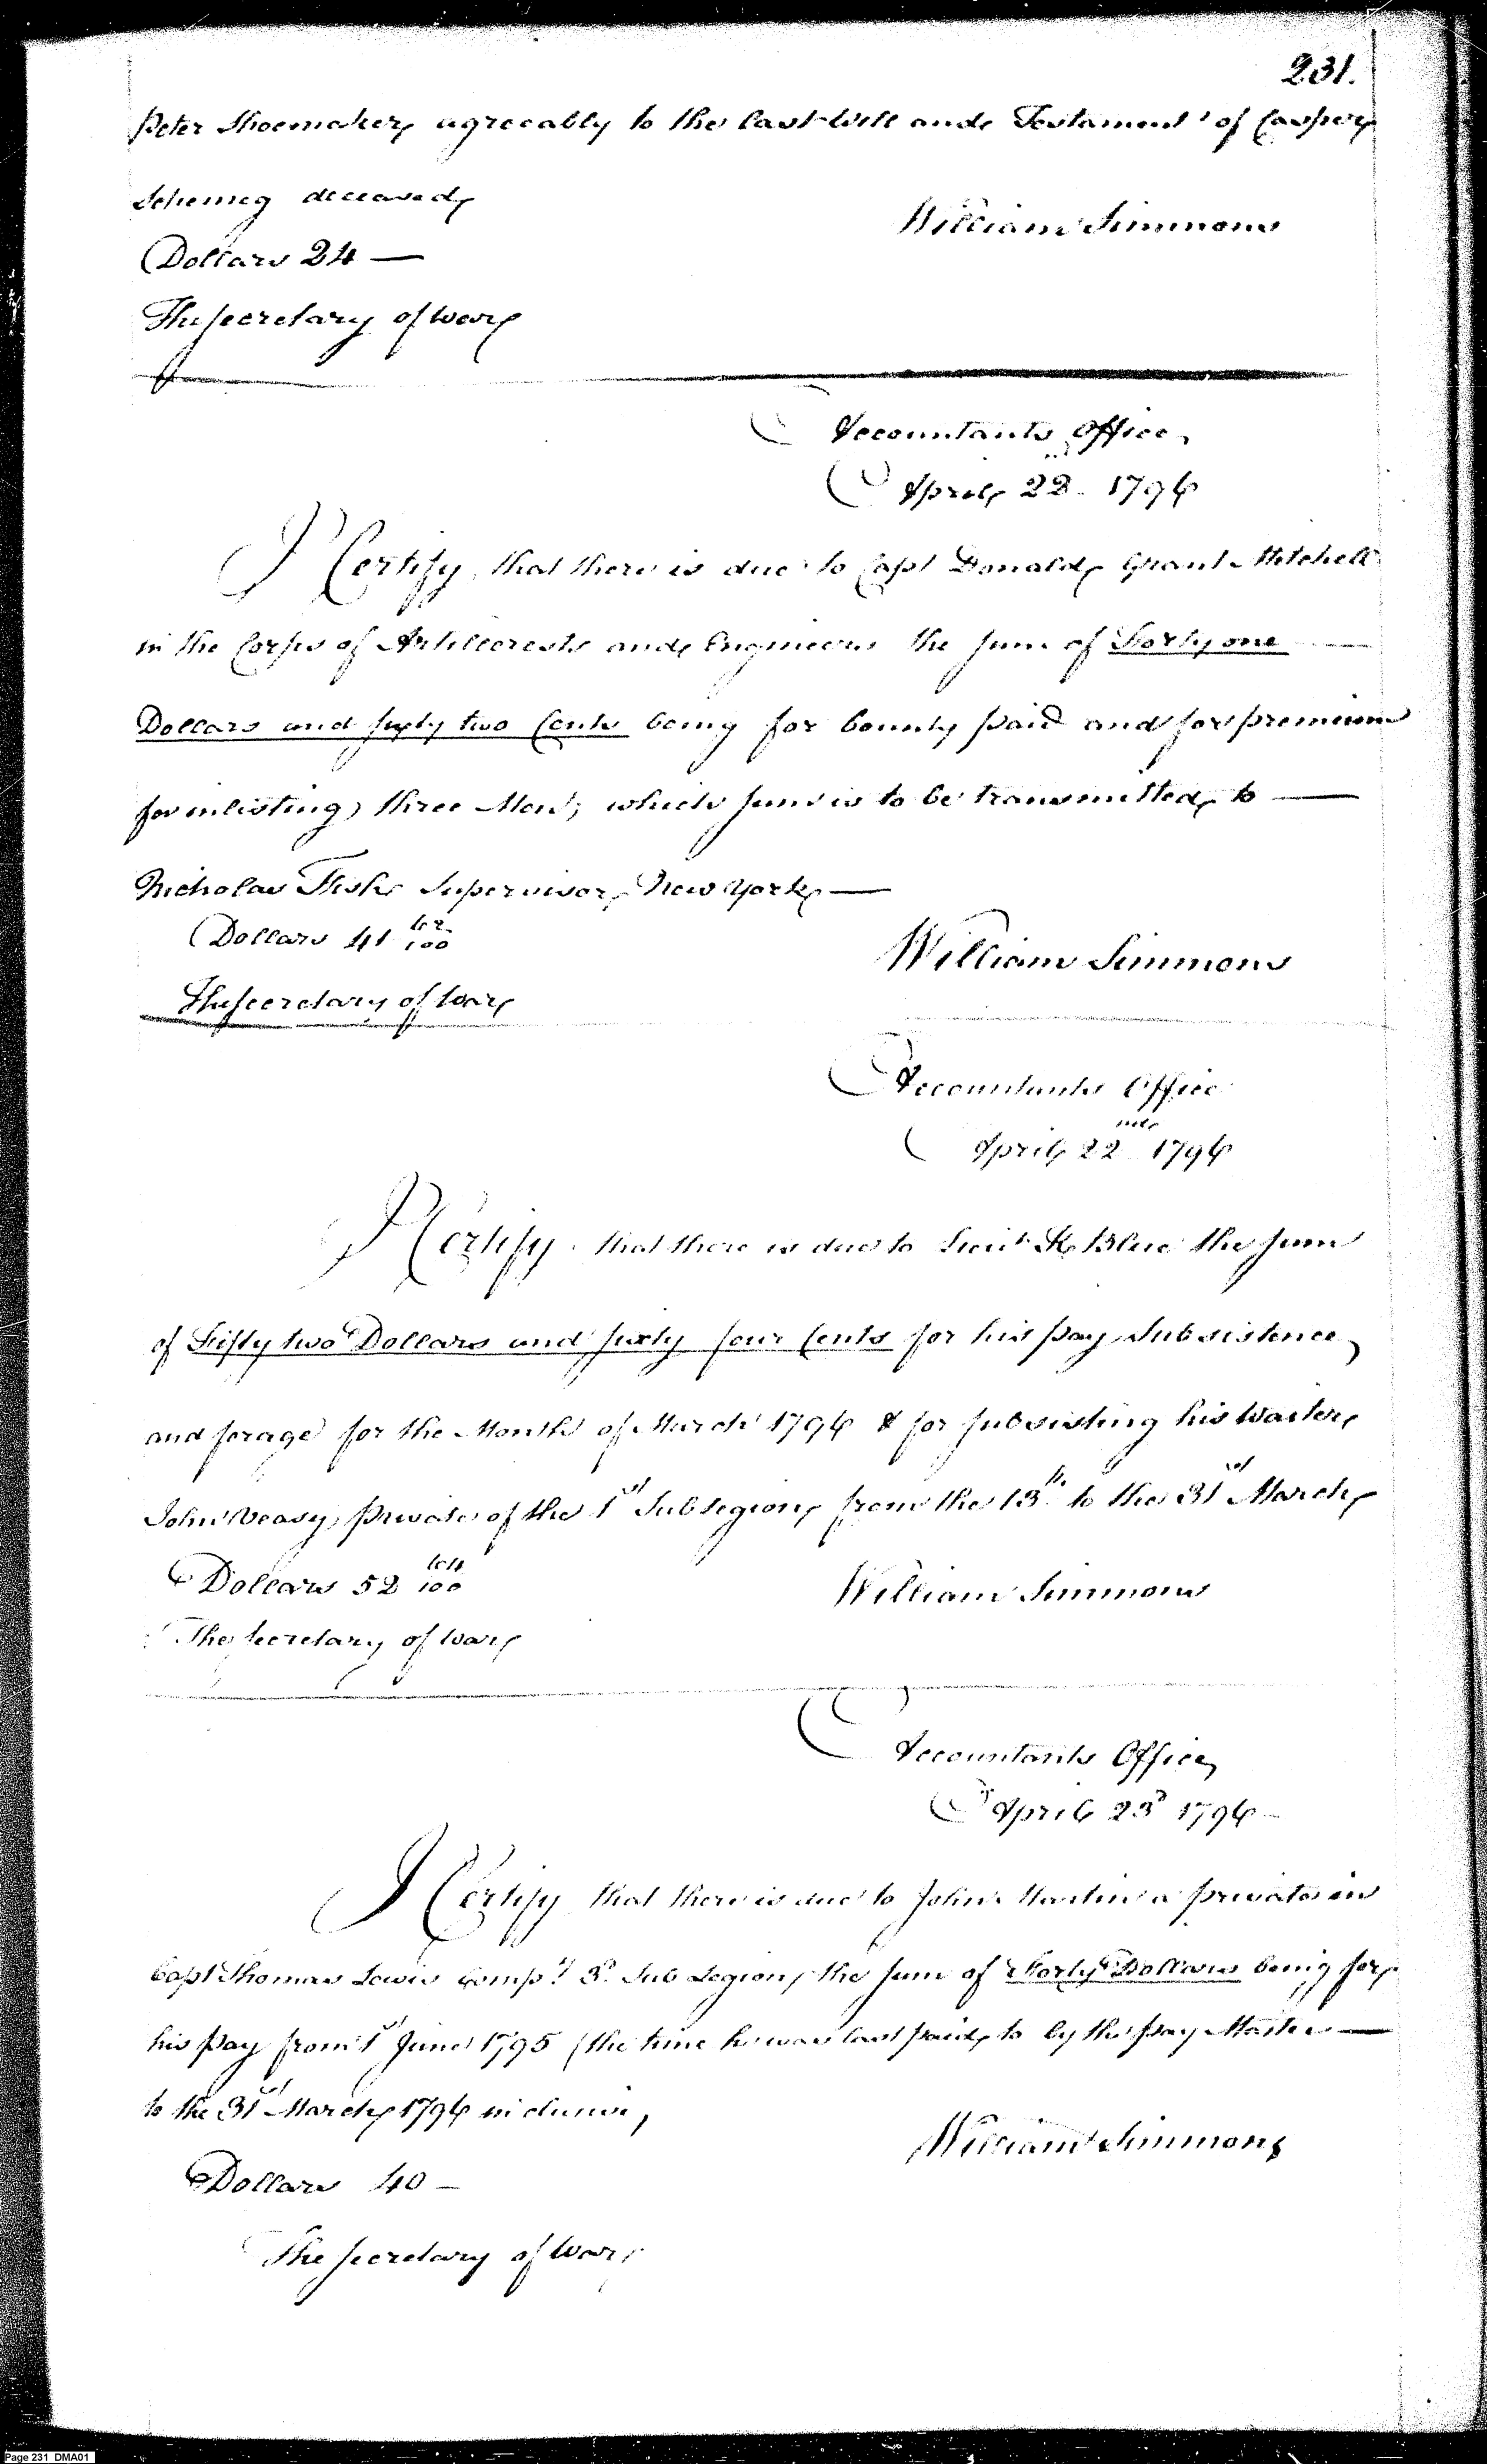 231.
Peter Shoemaker agreeably to the last Will and Testament of Casper
deceased,
William Simmons
Dollars 24 —
The Secretary of War
Accountants Office,
April 22 1796
I Certify, that there is due to Capt Donald Grant Mitchell
in the Corps of Artillerests and Engineers the sum of Forty one
Dollars and sixty two Cents being for bounty paid and for premium
for inlisting three Men; which sum is to be transmitted to —
Nicholas Fish Supervisor, New York —
Dollars 41 62/100
William Simmons
The Secretary of War
Accountants Office
April 22nd 1796
I Certify that there is due to Lieut Blue the sum
of Fifty two Dollars and sixty four Cents for his pay Subsistence,
and forage for the Month of March 1796 & for subsisting his Waiter
John Veasy, private of the 1st Sub legion, from the 13th to the 31st March,
Dollars 52 64/100
William Simmons
The Secretary of War
Accountants Office,
April 23d 1796 —
I Certify that there is due to John Martin a private in
Capt Thomas Lewis Compy 3d Sub Legion, the sum of Forty Dollars being for
his pay from 1st June 1795 (the time he was last paid to by the pay Master —
to the 31st March 1796 inclusive,
William Simmons
Dollars 40 —
The Secretary of War
Page 231 DMA01